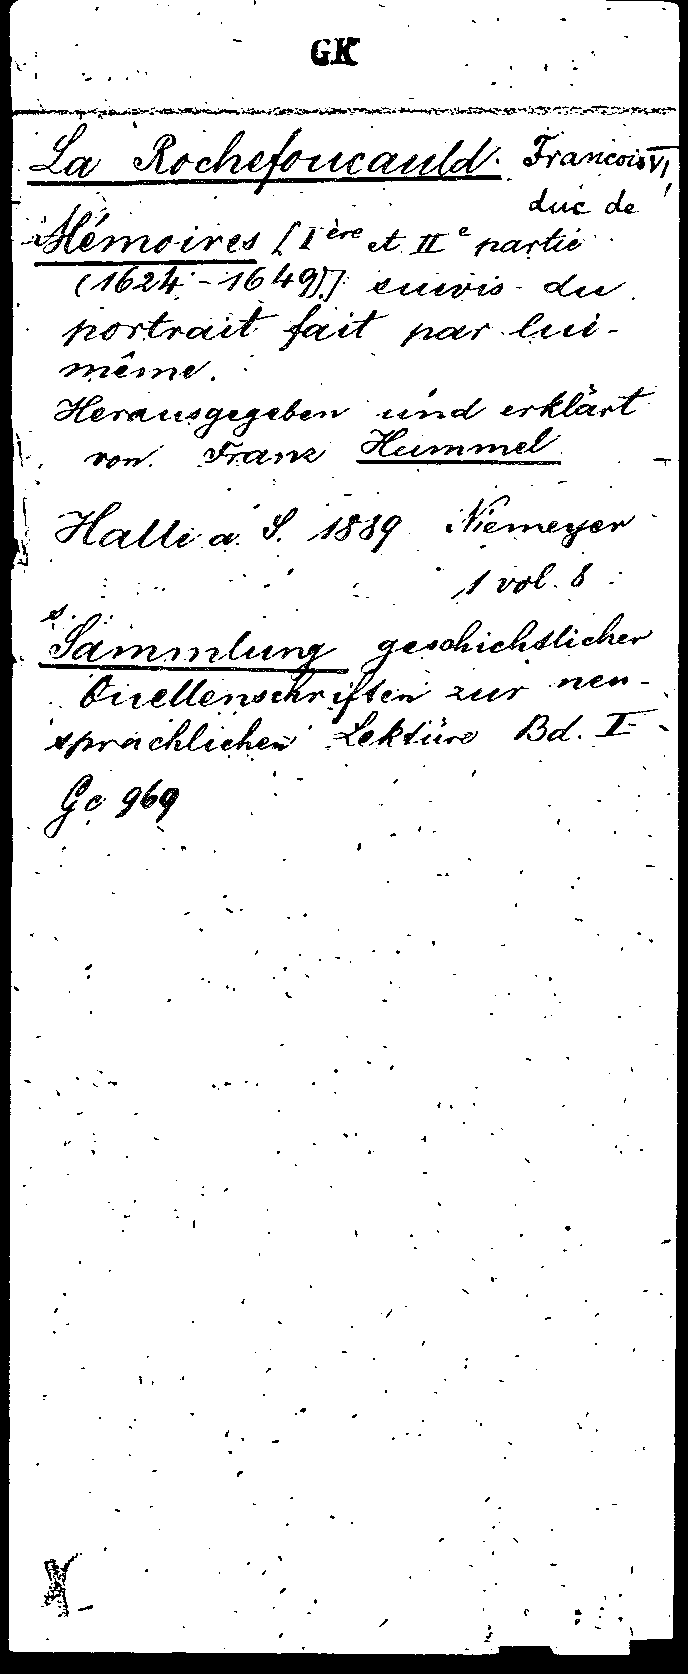 GK
La Rochefoucauld. Francois VI,
duc de
Mémoires [Ière et IIe partie
(1624-1649)] suivis du
portrait fait par lui-
même.
Herausgegeben und erklärt
von Franz Hummel
Halle a. S. 1889 Niemeyer
1 vol. 8
s.
Sammlung geschichtlicher
Quellenschriften zur neu-
sprachlichen Lektüre Bd. I
Gc 969